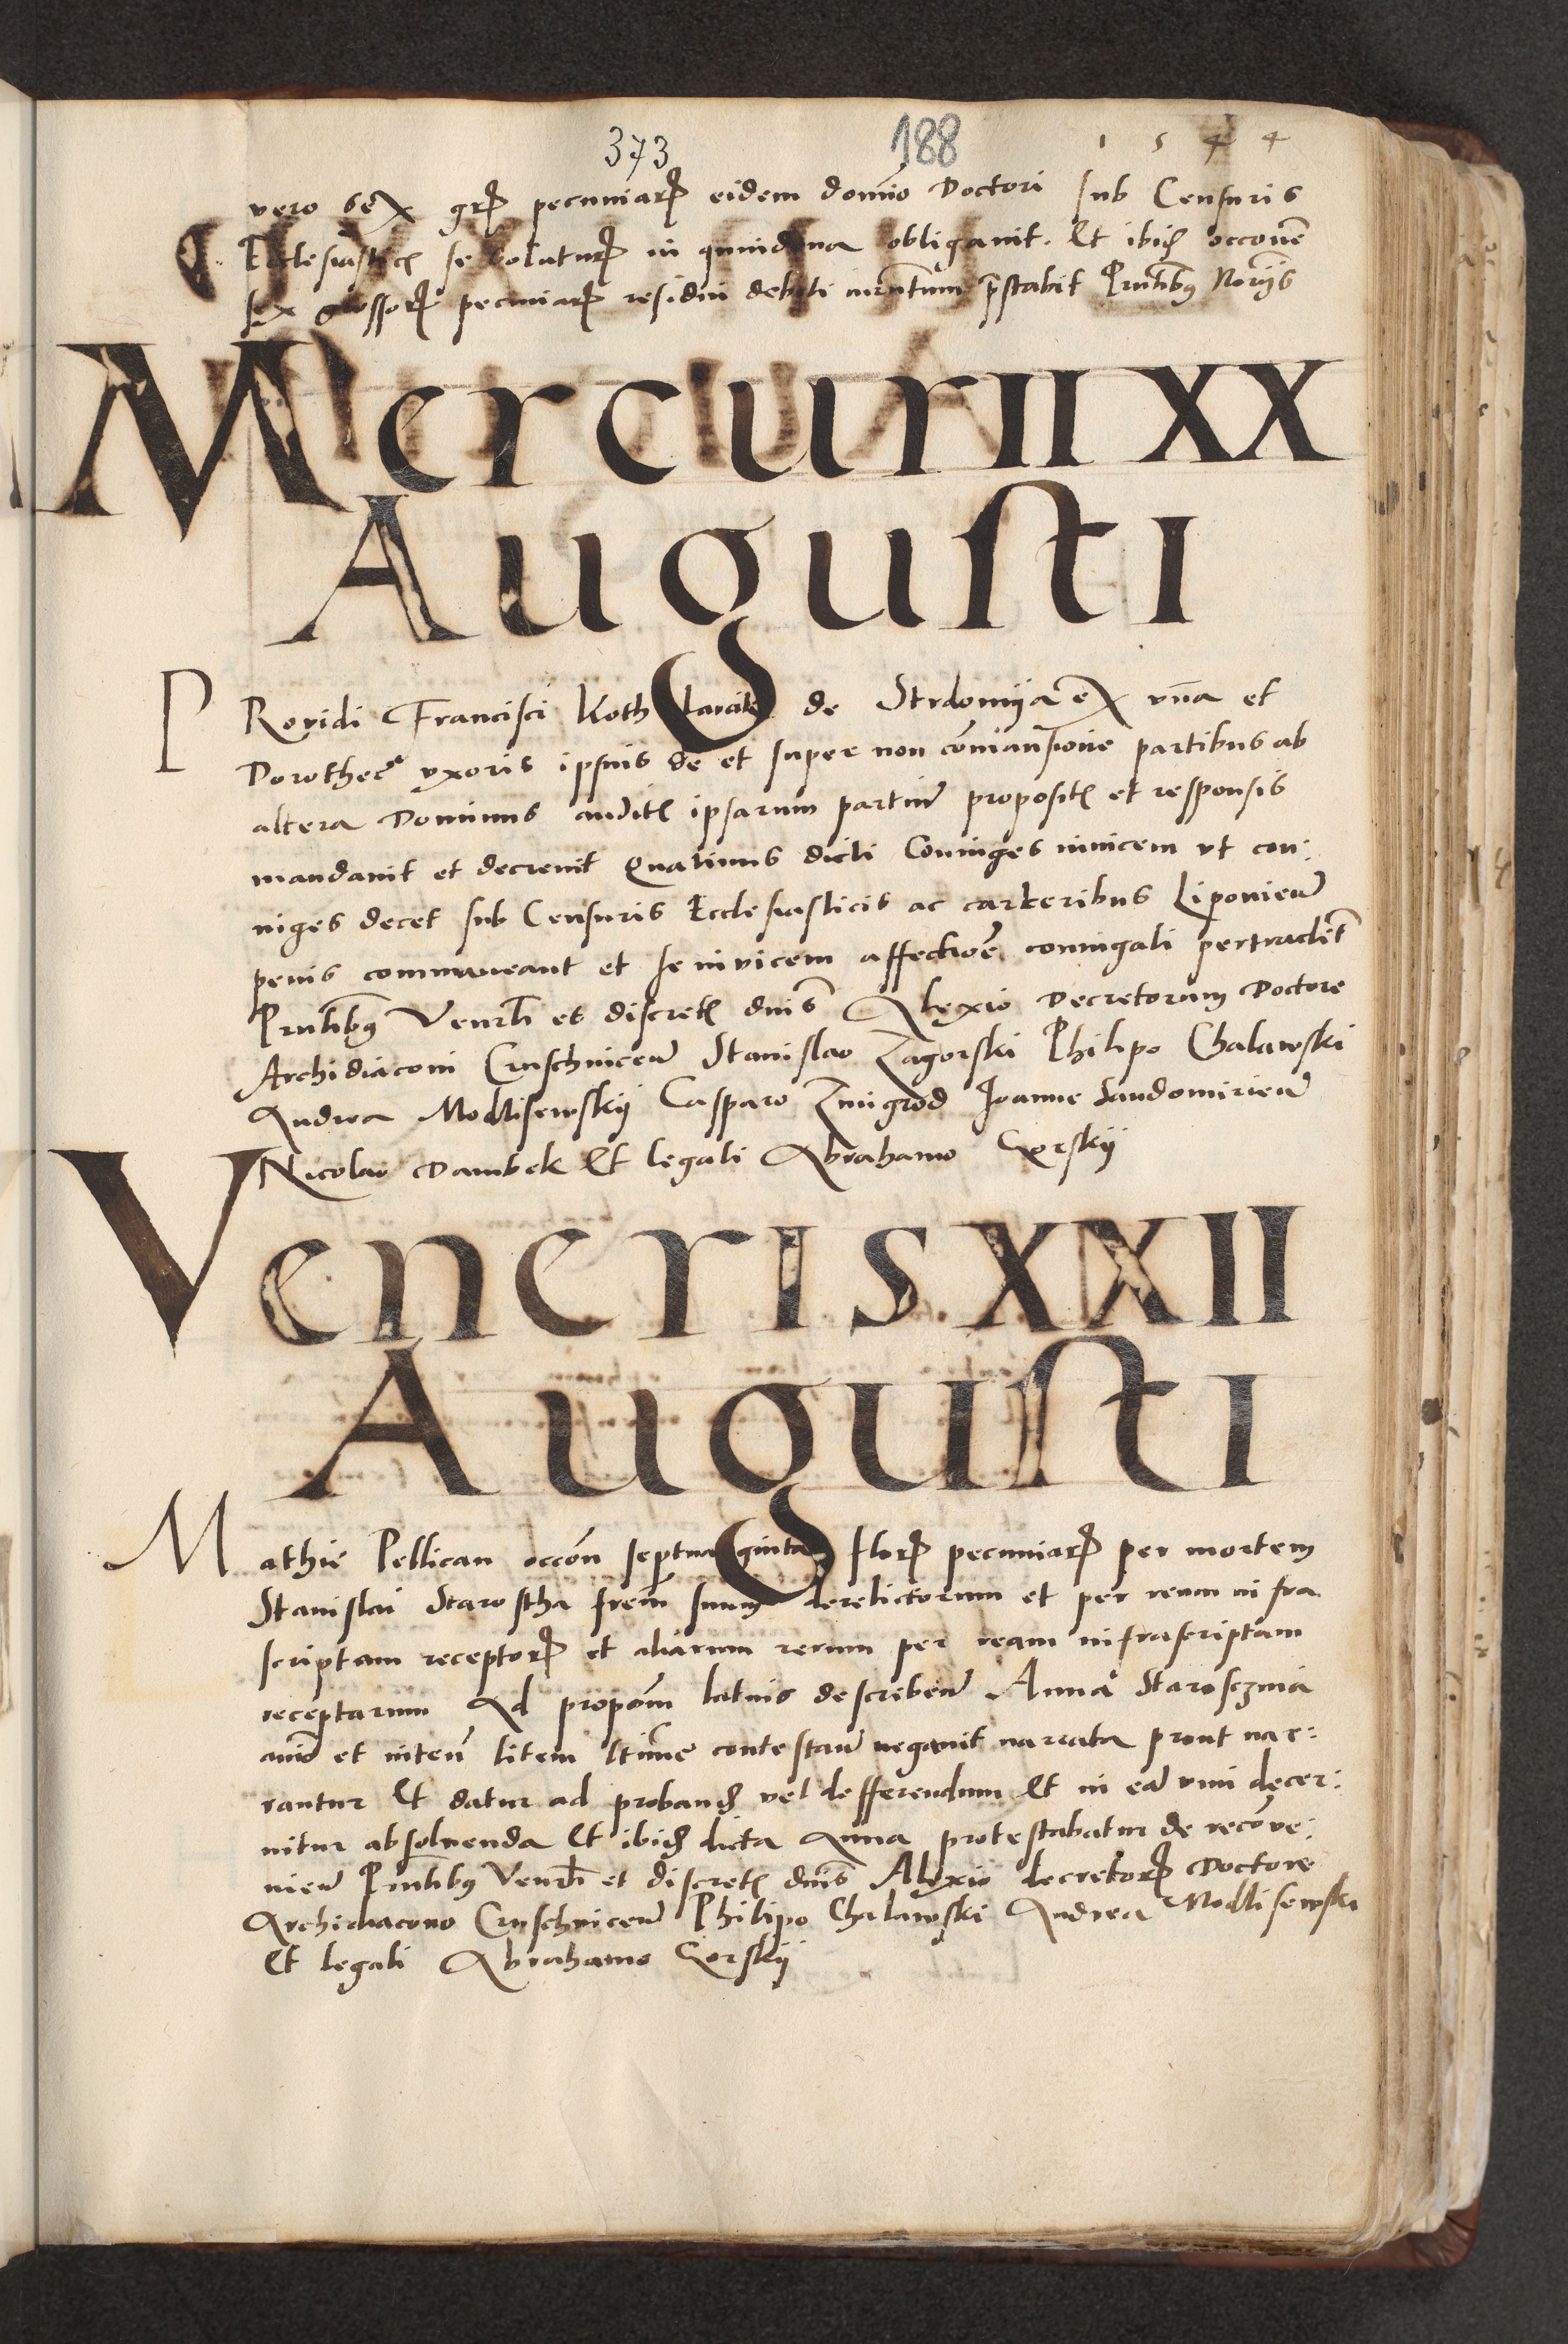 373 188 1544
vero sex grꝝ pecuniarꝝ eidem domīo Doctori sub Censuris
Ecclesiasticꝭ se soluturꝝ in quindena obligauit. Et ibidē occōne
sex grossorꝝ pecuniarꝝ residui debiti iurn̄tum p̄stabit Pn̄tibꝰ Noriis
Mercurii XX
Augusti
PRouidi Francisci Koth de Strdomiia ex vn̄a et
Dorothee vxoris ipsius de et super non cōmansione partibus ab
altera Dominus auditꝭ ipsarum partiū propositꝭ et responsis
mandauit et decreuit Quatinus dicti Coniuges inuicem vt con:
iuges decet sub Censuris Ecclesiasticis ac carceribus Liponien̄
penis commaneant et se inuicem affectiōe coniugali pertractēt
Pn̄tibꝰ Venrl̄i et discretꝭ dnīs Alexio Decretorum Doctore
Archidiaconi Cruschuicen̄ Stanislao Zagorski Philipo Chalawski
Andrea Modlisewskii Casparo Zmigrod Joanne Sandomirien̄
Nicolao Dambek Et legali Abrahamo Gorskii
Veneris XXII
Augusti
Mathie Pellican occōn septuaginta florꝝ pecuniarꝝ per mortem
Stanislai Starostha frēm suum derelictorum et per ream infra
scriptam receptorꝝ et aliarum rerum per ream infrascriptam
receptarum Ad propōm latius describen̄ Anna Starosczina
animo et inten̄ litem ltīme contestan̄ negauit narrata prout nar:
rantur Et datur ad probandū vel defferendum Et in eād vim decer:
nitur absoluenda Et ibidē dicta Anna protestabatur de recōue:
nien̄ Pn̄tibꝰ Venrl̄i et discretꝭ dnīs Alexio decretorꝝ Doctore
Archidiacono Cruschuicen̄ Philipo Chalawski Andrea Modlisewski
Et legali Abrahamo Gorskii